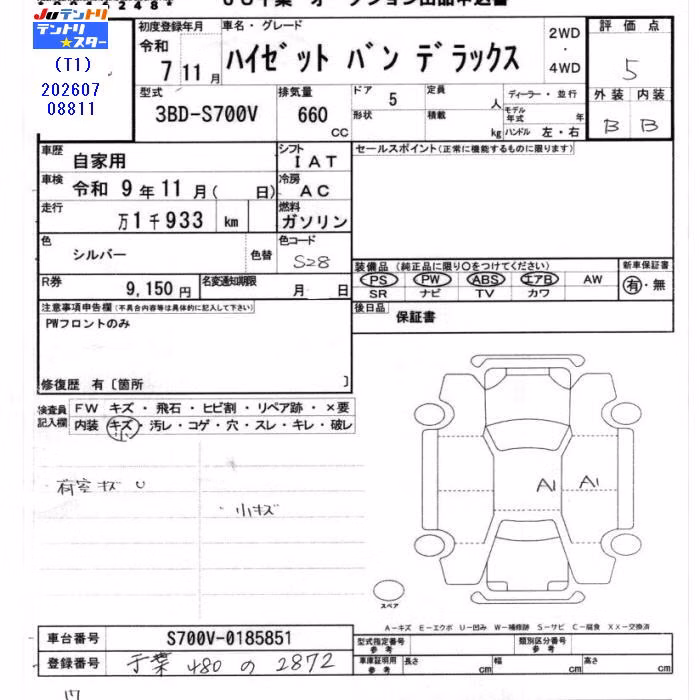 JUテントリ
テントリ★スター
(T1)
202607
08811
初度登録年月
令和
7 11 月
車名・グレード
ハイゼット バン デラックス
2WD
・
4WD
評価点
5
型式
3BD-S700V
排気量
660
CC
ドア
5
定員
人
形状
積載
kg
ディーラー・並行
モデル年式
年
ハンドル 左・右
外装 内装
B B
車歴
自家用
シフト
IAT
セールスポイント(正常に機能するものに限ります)
車検
令和 9 年 11 月( 日)
冷房
AC
走行
万 1 千 933 km
燃料
ガソリン
色
シルバー
色替
色コード
S28
R券
9,150 円
名変通知期限
月 日
装備品 (純正品に限り○をつけてください)
PS PW ABS エアB AW
SR ナビ TV カワ
新車保証書
有・無
注意事項申告欄(不具合内容は具体的に記入して下さい)
PWフロントのみ
後日品
保証書
修復歴 有〔箇所 〕
検査員
記入欄
FW キズ・飛石・ヒビ割・リペア跡・×要
内装 キズ・汚レ・コゲ・穴・スレ・キレ・破レ
小
荷室キズ U
小キズ
A1 A1
スペア
A-キズ E-エクボ U-凹み W-補修跡 S-サビ C-腐食 XX-交換済
車台番号
S700V-0185851
登録番号
千葉 480 の 2872
型式指定番号
参考
類別区分番号
参考
車庫証明用
参考
長さ cm
幅 cm
高さ cm